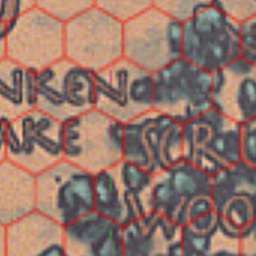 NKEN
AKE
SCRU
WOO